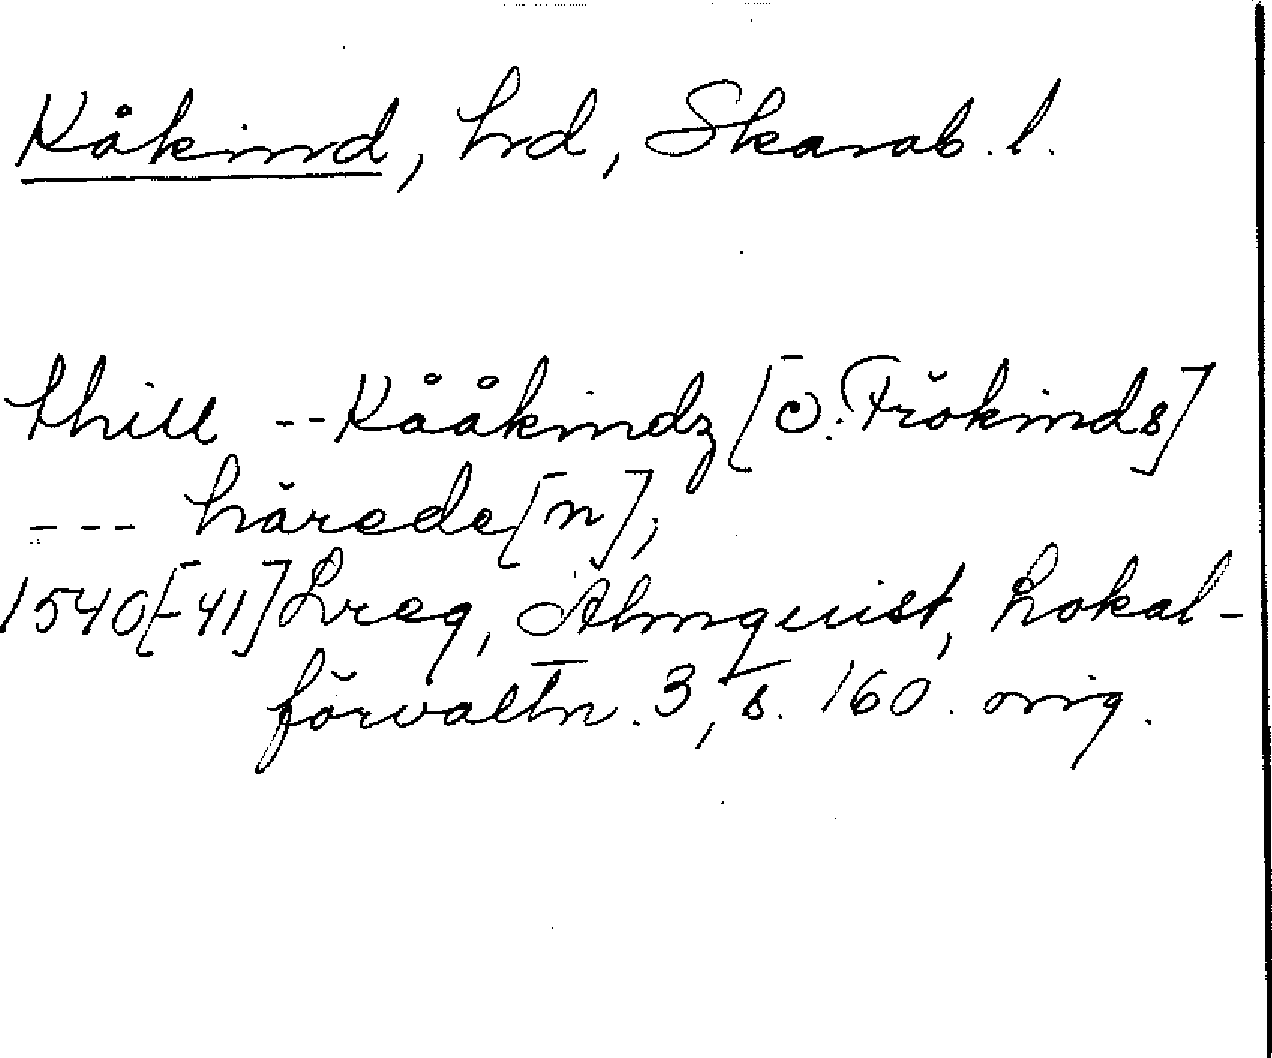 Kåkind, hrd, Skarab. l.
thill -- Kååkindz [o. Frökinds]
--- härede[n],
1540[-41] Lreg, Almquist, Lokal-
förvaltn. 3, s. 160. orig.